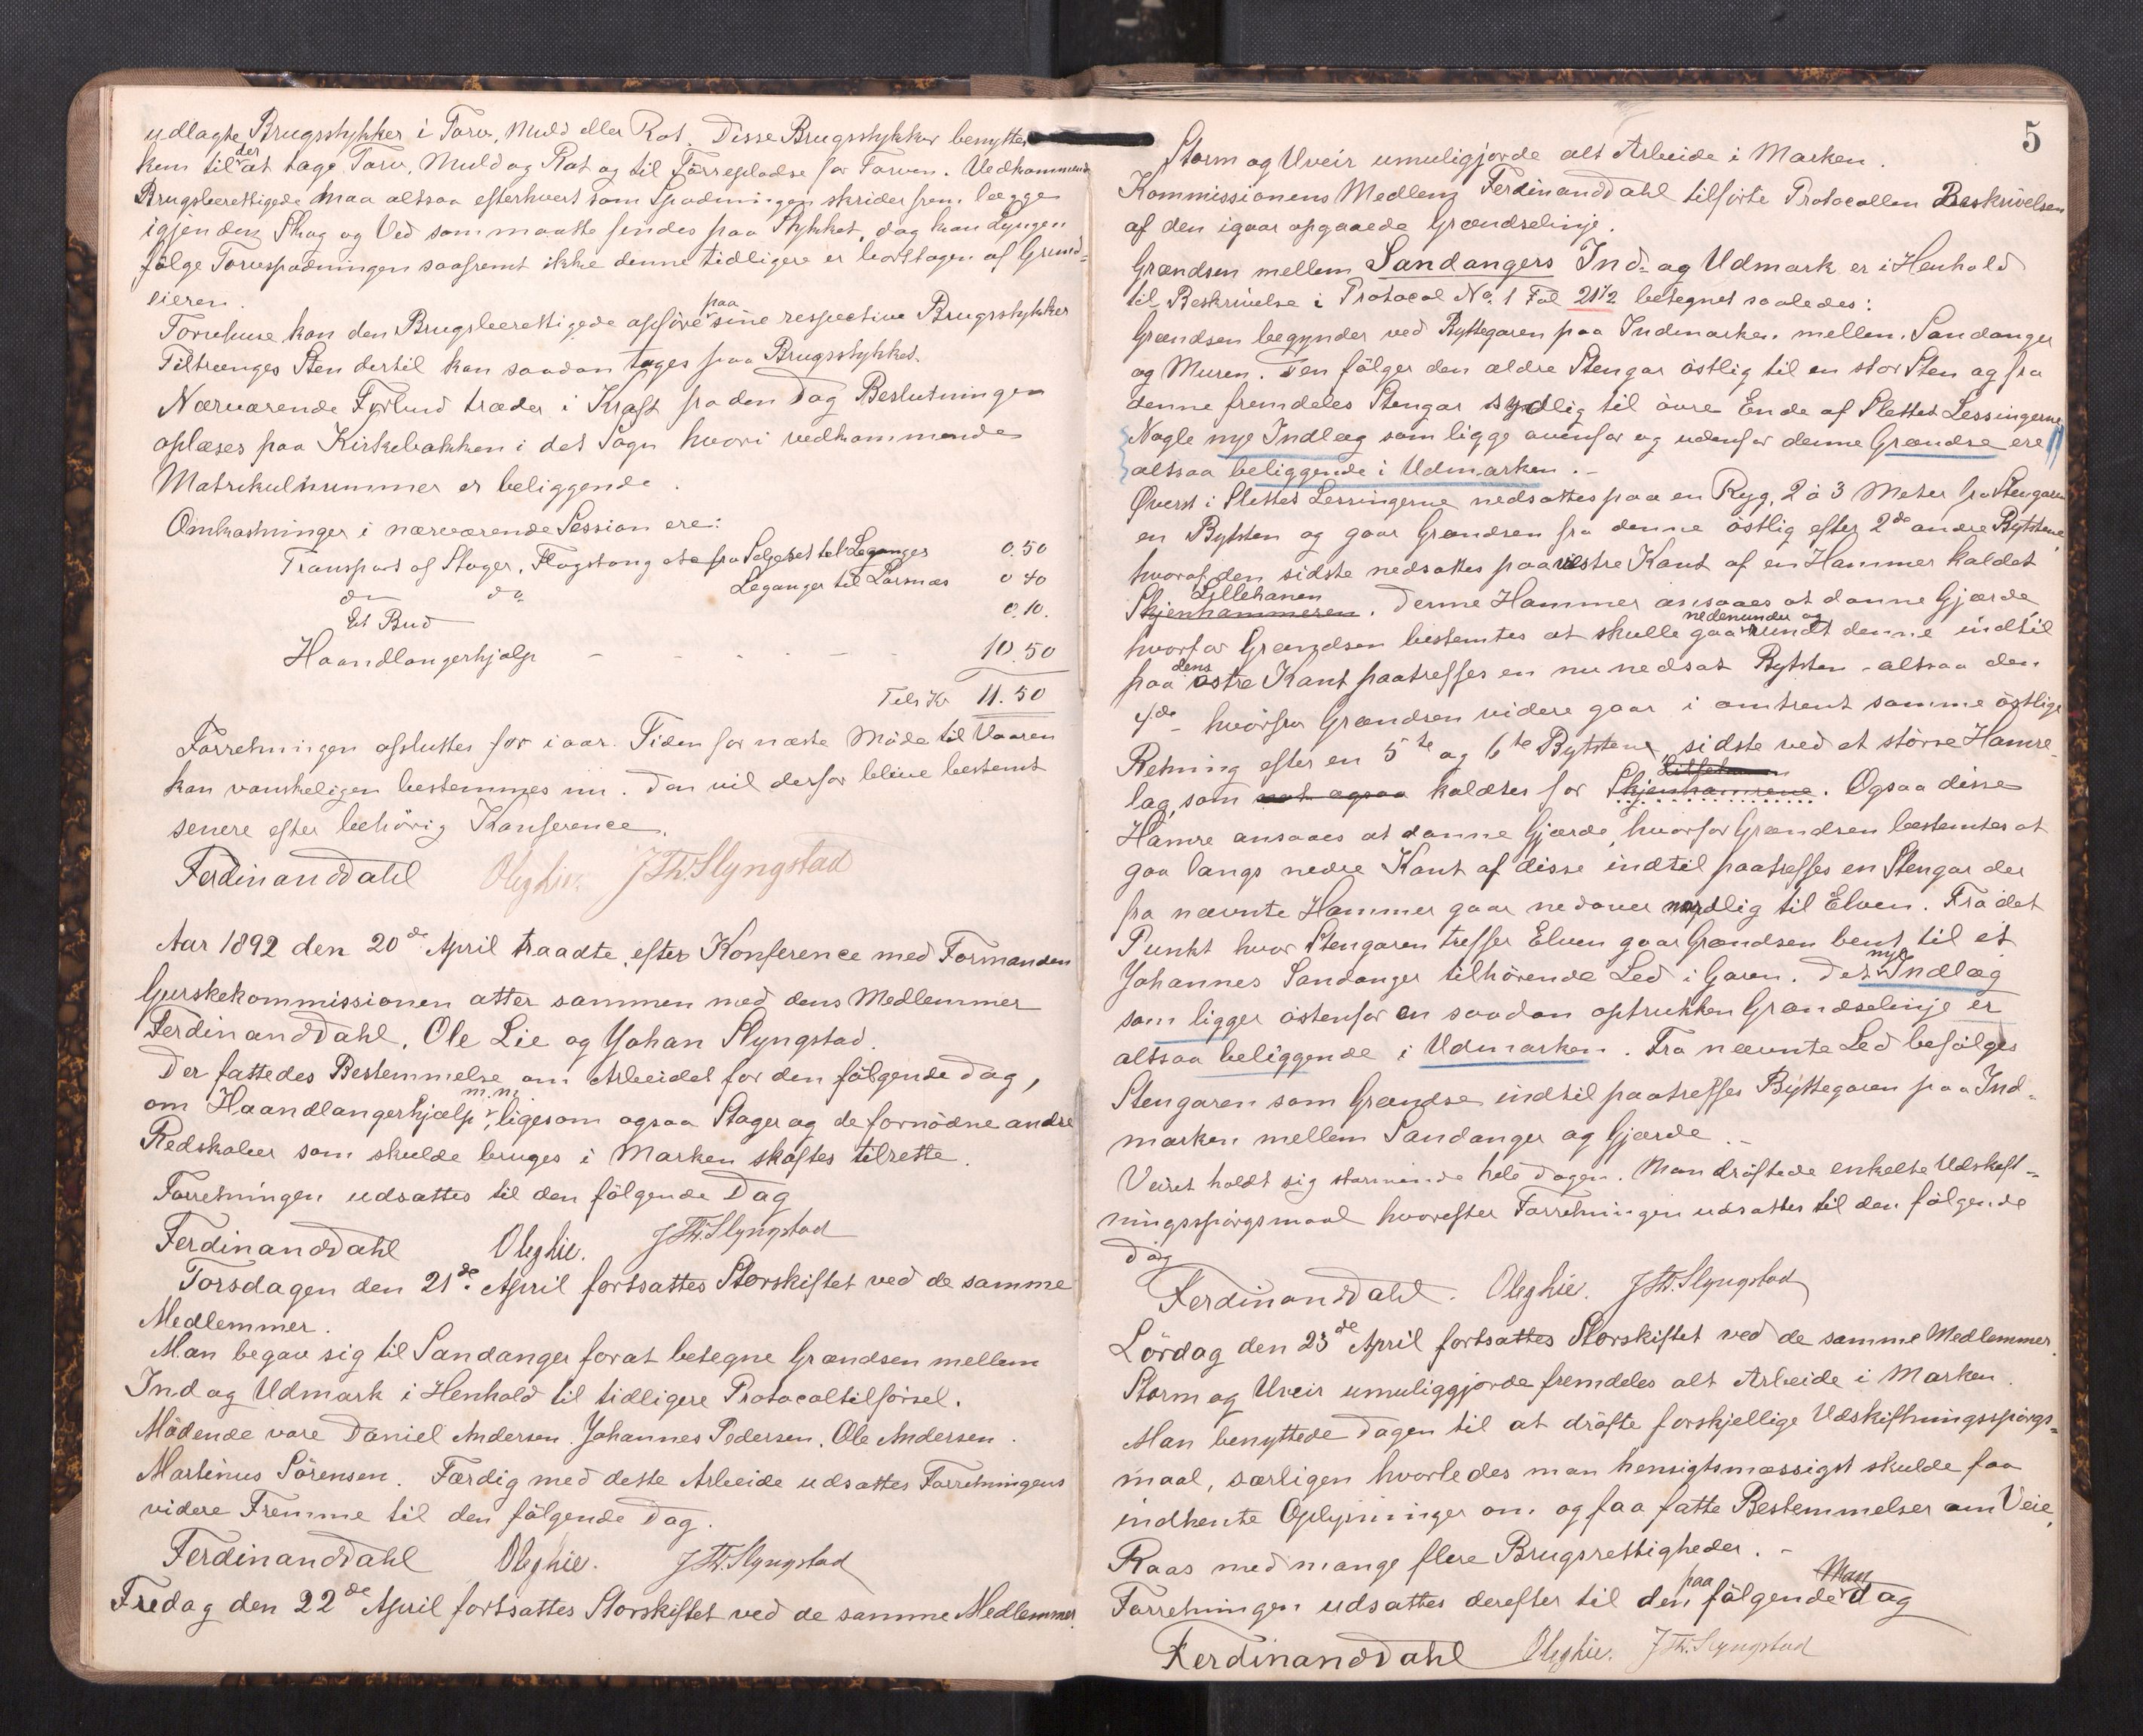 udlagte Brugsstykker i Torv, Muld eller Rot. Disse Brugsstykker benyttes
kun til der at tage Torv, Muld og Rot og til Törreplodse for Torven. Vedkommende
Brugsberettigede maa altsaa efterhvert som Spadningen skrider frem lægge
igjen den Skog og Ved som maatte findes paa Stykket, dog kan Lyngen
fölge Torvspadningen saafremt ikke denne tidligere er borttagen af Grund=
eieren.
Torvhuse kan den Brugsberettigede opföre paa sine respective Brugsstykker
Tiltrænges Sten dertil kan saadan tages paa Brugsstykket.
Nærværende Forbud træder i Kraft fra den Dag Beslutningen
oplæses paa Kirkebakken i det Sogn hvori vedkommende
Matrikulnummer er beliggende.
Omkostninger i nærværende Session ere:
Transport af Stager, Flagstang etc fra Seljeset til Leganger 0.50
do do Leganger til Larsnæs 0 40
Et Bud 0.10.
Haandlangerhjælp - - - - - 10.50
Tels Kr 11.50
Forretningen afsluttes for iaar. Tiden for næste Möde til Vaaren
kan vanskeligen bestemmes nu. Den vil derfor blive bestemt
senere efter behörig Konference.
Ferdinand Dahl OlegLie J Th. Slyngstad
Aar 1892 den 20de April traadte, efter Konference med Formanden
Gurskekommissionen atter sammen med dens Medlemmer
Ferdinand Dahl, Ole Lie og Johan Slyngstad.
Der fattedes Bestemmelse om Arbeidet for den fölgende Dag,
om Haandlangerhjælp m.m., ligesom ogsaa Stager og de fornödne andre
Redskaber som skulde bruges i Marken skaftes tilrette.
Forretningen udsattes til den fölgende Dag
Ferdinand Dahl OlegLie. J Th. Slyngstad
Torsdagen den 21de April fortsattes Storskiftet ved de samme
Medlemmer.
Man begav sig til Sandanger forat betegne Grændsen mellem
Ind og Udmark i Henhold til tidligere Protocoltilförsel.
Mödende vare Daniel Andersen, Johannes Pedersen, Ole Andersen.
Martinus Sörensen. Færdig med dette Arbeide udsattes Forretningens
videre Fremme til den fölgende Dag.
Ferdinand Dahl OlegLie. J Th. Slyngstad
Fredag den 22de April fortsattes Storskiftet ved de samme Medlemmer.
5
Storm og Uveir umuligjorde alt Arbeide i Marken.
Kommissionens Medlem Ferdinand Dahl tilförte Protocollen Beskrivelsen
af den igaar opgaaede Grændselinje.
Grændsen mellem Sandangers Ind- og Udmark er i Henhold
til Beskrivelse i Protocol No. 1 Fol 21½ betegnet saaledes:
Grændsen begynder ved Byttegaren paa Indmarken mellem Sandanger
og Muren. Den fölger den ældre Stengar östlig til en stor Sten og fra
denne fremdeles Stengar sydlig til övre Ende af Slettet Lessingerne
Nogle nye Indlæg som ligge ovenfor og udenfor denne Grændse ere
altsaa beliggende i Udmarken.-
Øverst i Slettet Lessingerne nedsattes paa en Ryg, 2 à 3 Meter fra Stengaren
en Bytsten og gaar Grændsen fra denne östlig efter 2de andre Bytstene,
hvoraf den sidste nedsattes paa vestre Kant af en Hammer kaldet
Lillehanen
Skjenhammeren. Denne Hammer ansaaes at danne Gjærde
hvorfor Grændsen bestemtes at skulle gaa nedenunder og rundt denne indtil
paa dens östre Kant paatreffes en nu nedsat Bytsten - altsaa den
4de - hvorfra Grændsen videre gaar i omtrent samme östlige
Retning efter en 5te og 6te Bytstene, sidste ved et större Hamre-
lag, som kaldes for Skjenhamrene. Ogsaa disse
Hamre ansaaes at danne Gjærde, hvorfor Grændsen bestemtes at
gaa langs nedre Kant af disse indtil paatreffes en Stengar der
fra nævnte Hammer gaar nedover nordlig til Elven. Fra det
Punkt hvor Stengaren treffer Elven gaar Grændsen bent til et
Johannes Sandanger tilhörende Led i Garen. Det nye Indlæg
som ligger östenfor en saadan optrukken Grændselinje er
altsaa beliggende i Udmarken. Fra nævnte Led befölges
Stengaren som Grændse indtil paatreffes Byttegaren paa Ind-
marken mellem Sandanger og Gjærde.-
Veiret holdt sig stormende hele Dagen. Man dröftede enkelte Udskift-
ningsspörgsmaal hvorefter Forretningen udsattes til den fölgende
Dag
Ferdinand Dahl. OlegLie. J Th. Slyngstad
Lördag den 23de April fortsattes Storskiftet ved de samme Medlemmer.
Storm og Uveir umuliggjorde fremdeles alt Arbeide i Marken.
Man benyttede Dagen til at dröfte forskjellige Udskiftningsspörgs=
maal, særligen hvorledes man hensigtsmæssigst skulde faa
indhente Oplysninger om og faa fatte Bestemmelser om Veie,
Raas med mange flere Brugsrettigheder.-
Forretningen udsattes derefter til den paa fölgende Man dag
Ferdinand Dahl OlegLie. J Th. Slyngstad